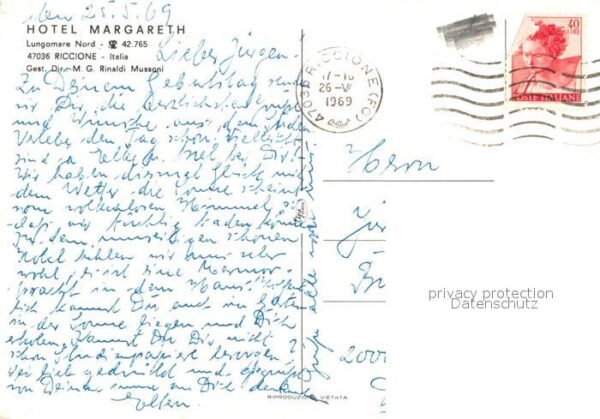 den 25.5.69
HOTEL MARGARETH
Lungomare Nord - ☎ 42.765
47036 RICCIONE - Italia
Gest. Dir. M. G. Rinaldi Mussoni
Lieber Jürgen
Zu Deinem Geburtstag senden
wir Dir die herzlichsten Grüße
und Wünsche aus dem Süden
Verlebe den Tag schön, vielleicht
sind ja bei Dir.
Wir haben diesmal Glück mit
dem Wetter, die Sonne scheint
vom wolkenlosen Himmel, so
daß wir tüchtig baden können
In dem schönen
Hotel fühlen wir uns sehr
wohl, es ist eine
pracht in dem Haus.
lich kannst Du auch im Garten
in der Sonne liegen und Dich
erholen. Kannst Du Dir nicht
schon Studienpapiere besorgen?
Sei lieb gedrückt und gegrüßt
von Deiner immer an Dich denkenden
47036 RICCIONE (FO)
17-18
26-V
1969
40
LIRE
POSTE ITALIANE
Herrn
privacy protection
Datenschutz
2000
RIPRODUZIONE VIETATA